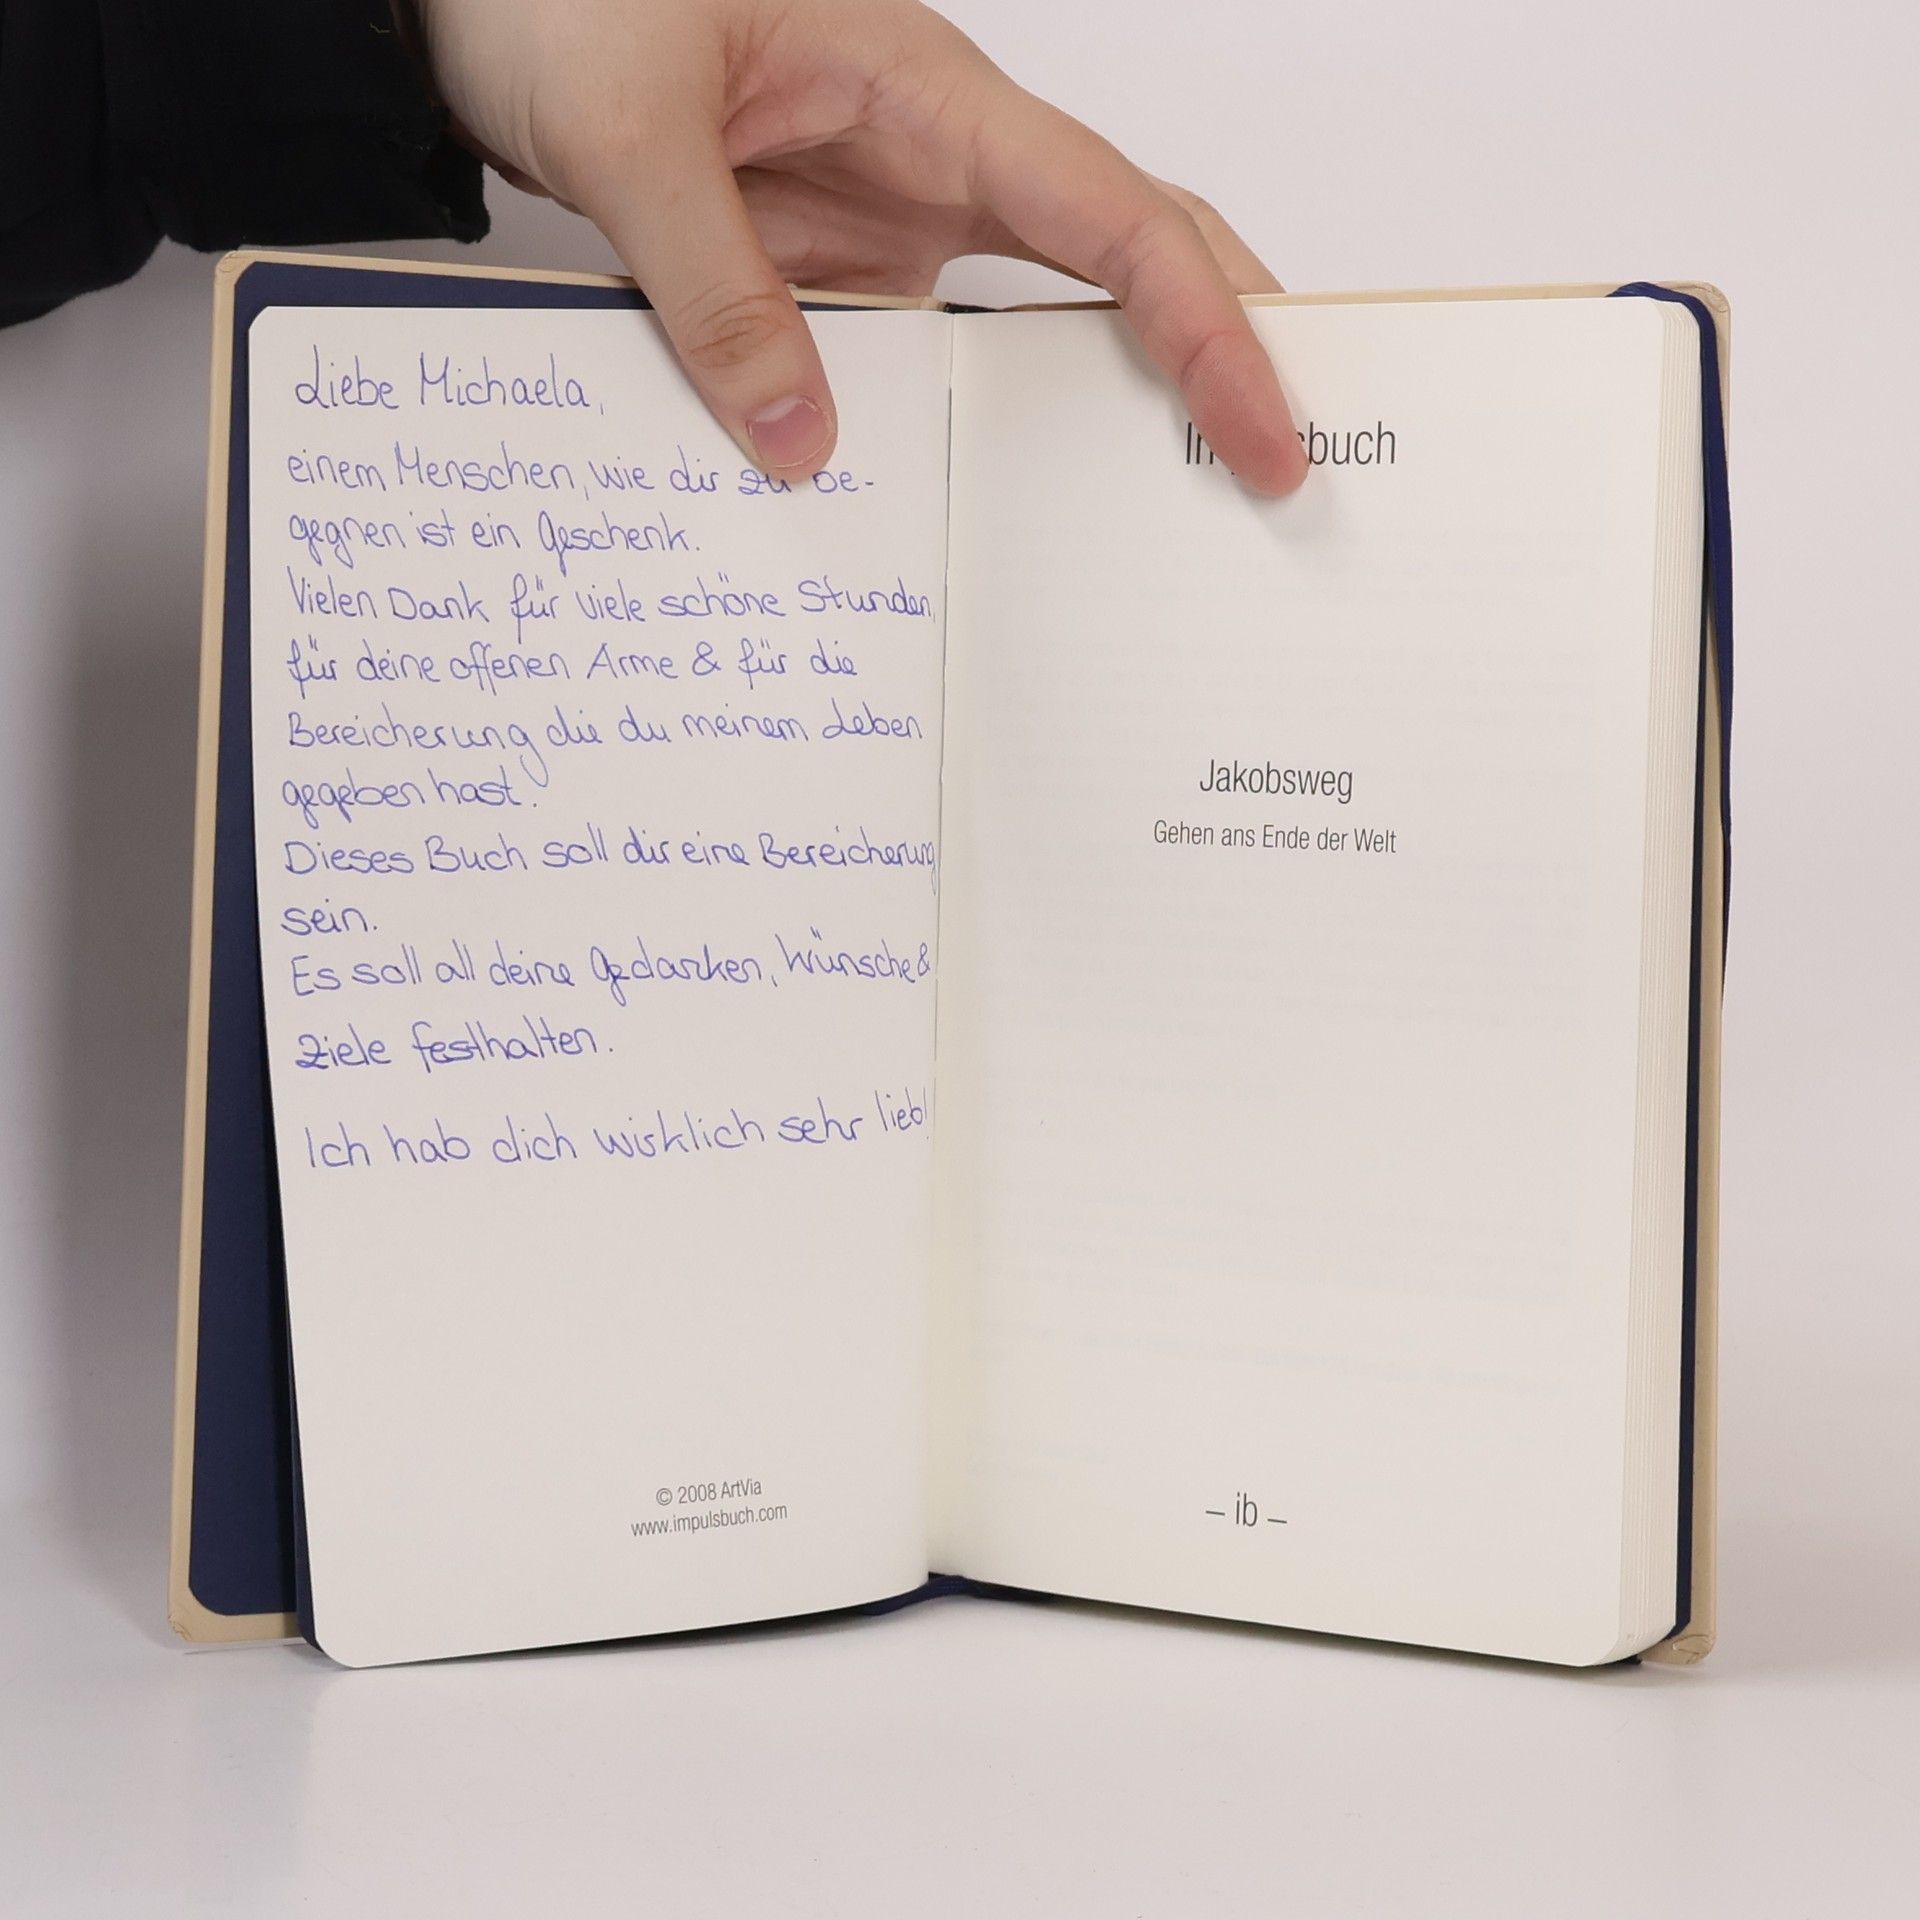 Liebe Michaela,
einem Menschen, wie dir zu be-
gegnen ist ein Geschenk.
Vielen Dank für viele schöne Stunden,
für deine offenen Arme & für die
Bereicherung die du meinem Leben
gegeben hast.
Dieses Buch soll dir eine Bereicherung
sein.
Es soll all deine Gedanken, Wünsche &
Ziele festhalten.
Ich hab dich wirklich sehr lieb!
© 2008 ArtVia
www.impulsbuch.com
Jakobsweg
Gehen ans Ende der Welt
– ib –